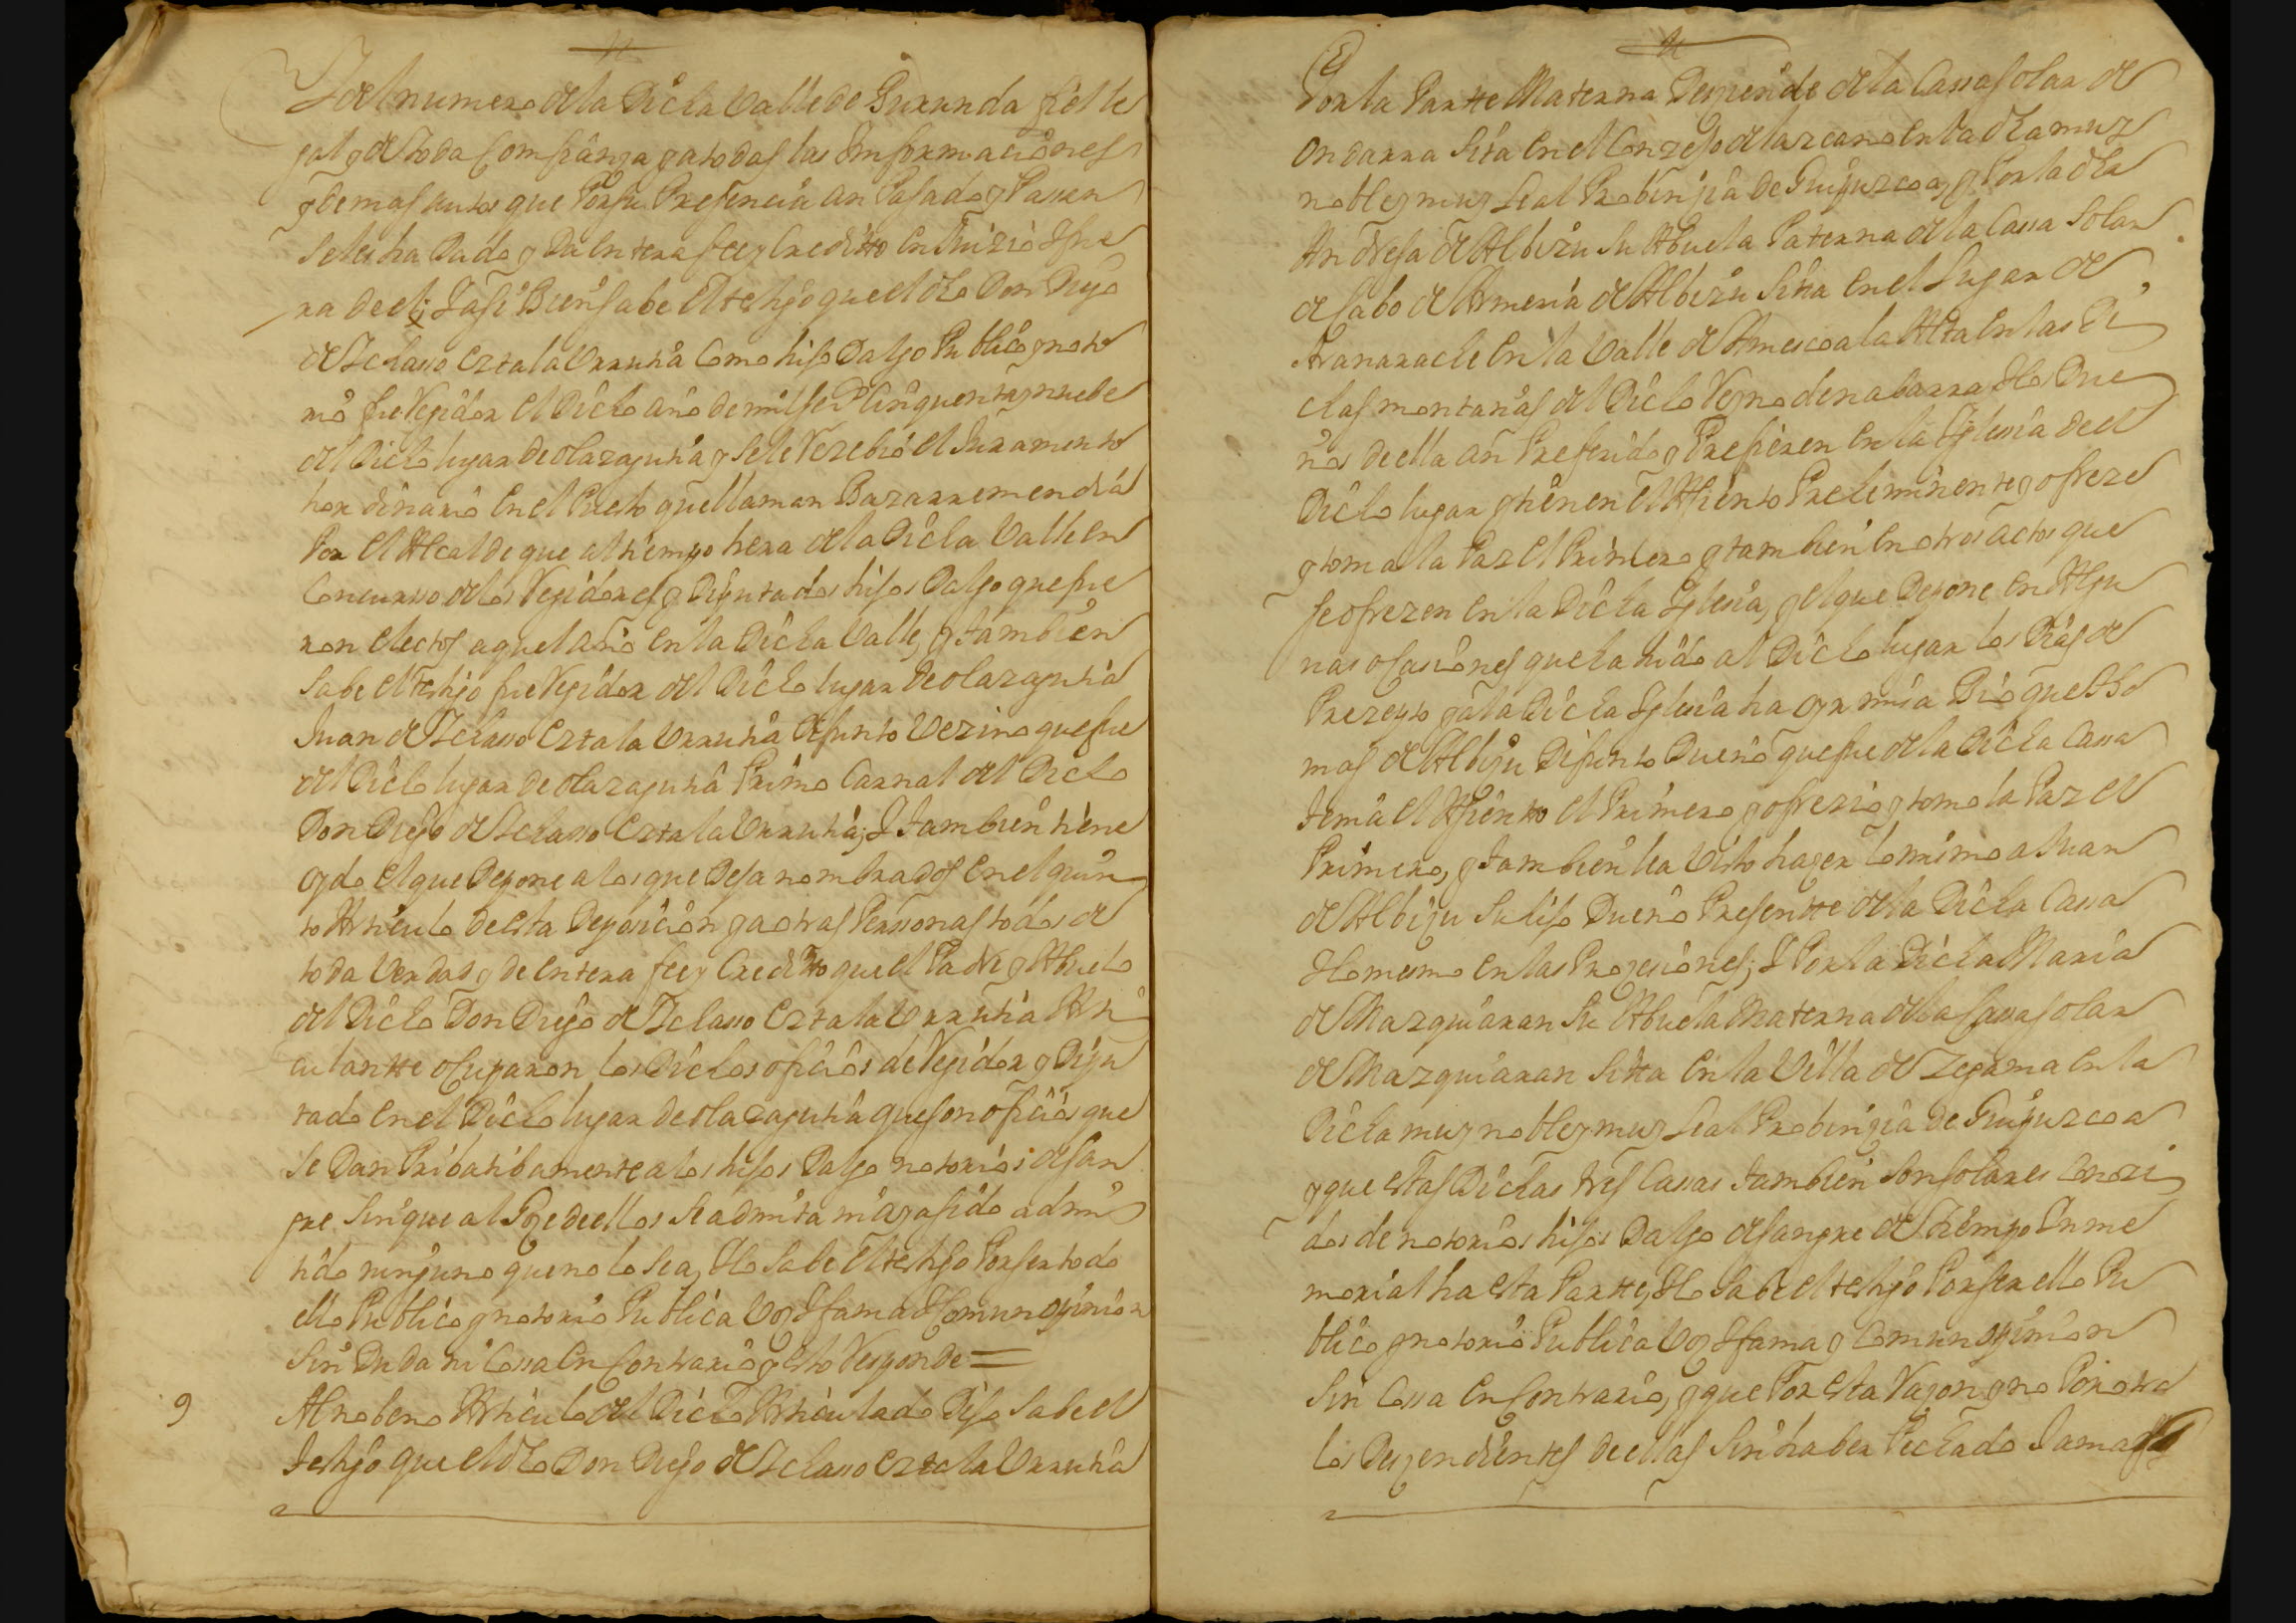 Y del numero de la Dicha Valle de Burunda fiel le
gal y de toda Confianza y a todas las Informaciones
y demas autos que Por su Presencia an Pasado y Pasan
se les ha Dado y Da Entera fee y Creditto En Juizio I fue
ra de el; I asi Bien sabe El testigo que el dho Don Diego
de Ichasso Eztala Urrutia Como hijo Dalgo Publico y noto
rio fue Regidor El Dicho año de mil seis Cinquenta y nuebe
del Dicho lugar de olazagutia y se le Rezebio el Juramento
hordinario En el Puesto que llaman Bazarremendia
Por El Alcalde que al tiempo hera de la Dicha Valle En
Concurso de los Regidores y Diputados hijos Dalgo que fue
ron electos aquel año En la Dicha Valle, y tambien
sabe el testigo fue Regidor del Dicho lugar de olazagutia
Juan de Ichasso Eztala Urrutia difunto Vezino que fue
del Dicho lugar de olazagutia Primo Carnal del Dicho
Don Diego de Ichasso Eztala Urrutia; I tambien tiene
oydo el que Depone a los que Deja nombrados En el quin
to Articulo de esta Deposicion y a otras Perssonas todos de
toda Verdad y de Entera fee y Creditto que el Padre y Abuelo
del Dicho Don Diego de Ichasso Eztala Urrutia Arti
culantte ocuparon los Dichos oficios de Regidor y Dipu
tado En el Dicho lugar de olazagutia que son oficios que
se Dan Pribatibamente a los hijos Dalgo notorios de san
gre sin que al Goze de ellos se admita ni aya sido admi
tido ninguno que no lo sea, I lo sabe El testigo Por ser todo
ello Publico y notorio Publica Voz I fama I Comun opinion
sin Duda ni Cossa En Contrario y Esto Responde =
9 Al nobeno Articulo del Dicho Articulado Dijo sabe el
testigo que el dho Don Diego de Ichasso Eztala Urrutia
Por la Partte Materna Depende de la Cassa solar de
Ondarra sita En el Conzejo de lazcano En la dha muy
noble y muy leal Probinzia de Guipuzcoa, y Por la dha
Andresa de Albizu su Abuela Paterna de la Cassa solar
de Cabo de Armeria de Albizu sitta En el lugar de
Aranarache En la Valle de Amescoa la Alta En las Di
chas montañas del Dicho Reyno de nabarra I los Due
ños de ella an Preferido y Prefieren En la Iglesia de el
Dicho lugar y tienen El Asiento Preheminente y ofreze
y toma la Paz el Primero y tambien En otros actos que
se ofrezen En la Dicha Iglesia, y el que Depone En Algu
nas ocasiones que ha hido al Dicho lugar los Dias de
Prezepto y a la Dicha Iglesia ha oyr missa Bio que Tho
mas de Albizu Difunto Dueño que fue de la Dicha Cassa
tenia el Asientto el Primero y ofrezio y tomo la Paz el
Primero, y tambien ha Visto hazer lo mismo a Juan
de Albizu su hijo Dueño Presentte de la Dicha Cassa
I lo mesmo En las Prozesiones; I Por la Dicha Maria
de Mazquiaran su Abuela Materna de la Cassa solar
de Mazquiaran sitta En la Villa de Zegama En la
Dicha muy noble y muy leal Probinzia de Guipuzcoa
y que estas Dichas tres Cassas tambien son solares Conozi
dos de notorios hijos Dalgo de sangre de Tiempo Inme
morial ha esta Partte, I lo sabe el testigo Por ser ello Pu
blico y notorio Publica Voz I fama y Comun opinion
sin Cossa En Contrario, y que Por esta Razon y no Por otra
los Dependientes de ellas sin haber Pechado Jamas